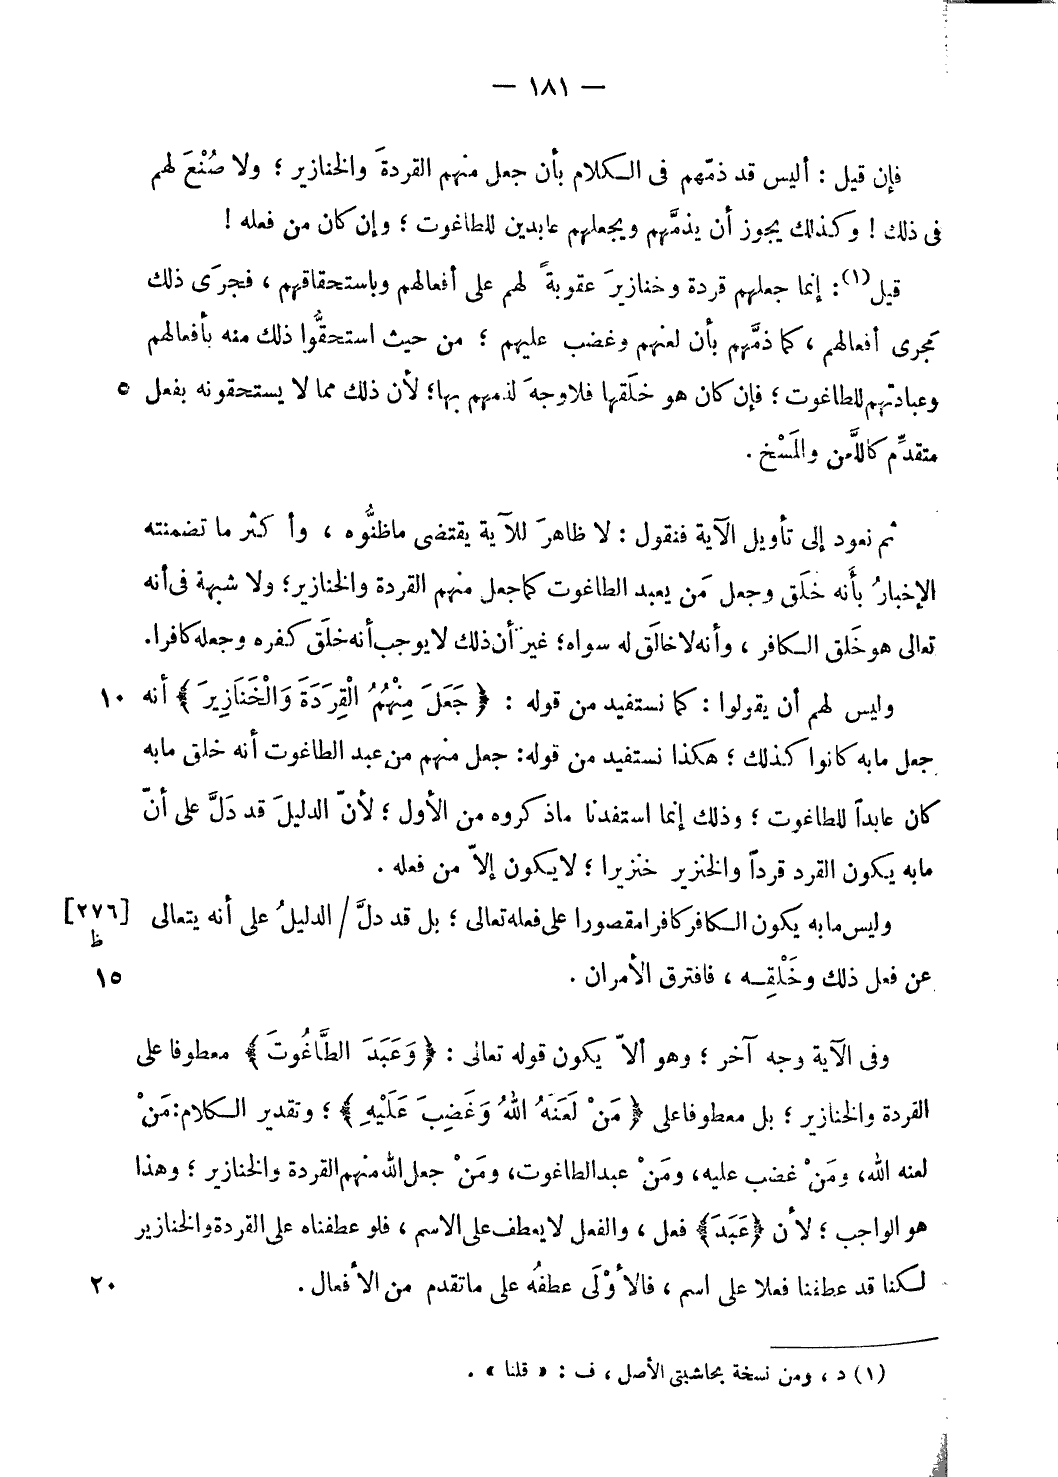 — ١٨١ —
فإن قيل : أليس قد ذمّهم فى الكلام بأن جعل منهم القردةَ والخنازير ؛ ولا صُنْعَ لهم
فى ذلك ! وكذلك يجوز أن يذمَّهم ويجعلهم عابدين للطاغوت ؛ وإن كان من فعله !
قيل (١) : إنما جعلهم قردة وخنازيرَ عقوبةً لهم على أفعالهم وباستحقاقهم ، فجرَى ذلك
مَجرى أفعالهم ، كما ذمَّهم بأن لعنهم وغضب عليهم ؛ من حيث استحقُّوا ذلك منه بأفعالهم
وعبادتهم للطاغوت ؛ فإن كان هو خلَقها فلا وجهَ لذمهم بها؛ لأن ذلك مما لا يستحقونه بفعل ٥
متقدِّم كاللَّعن والمَسْخ .
ثم نعود إلى تأويل الآية فنقول : لا ظاهرَ للآية يقتضى ماظنُّوه ، وأكثر ما تضمنته
الإخبارُ بأَنه خلَق وجعل مَن يعبد الطاغوت كما جعل منهم القردة والخنازير؛ ولا شبهة فى أنه
تعالى هو خَلق الكافر ، وأنه لا خالَق له سواه؛ غيرَ أن ذلك لا يوجب أنه خلَق كفره وجعله كافرا.
وليس لهم أن يقولوا : كما نستفيد من قوله : ﴿ جَعَلَ مِنْهُمُ الْقِرَدَةَ وَالْخَنَازِيرَ ﴾ أنه ١٠
جعل مابه كانوا كذلك ؛ هكذا نستفيد من قوله: جعل منهم من عبد الطاغوت أنه خلق مابه
كان عابداً للطاغوت ؛ وذلك إنما استفدنا ماذكروه من الأول ؛ لأنّ الدليلَ قد دَلَّ على أنّ
مابه يكون القرد قرداً والخنزير خنزيرا ؛ لا يكون إلاّ من فعله .
وليس مابه يكون الكافر كافرا مقصورا على فعله تعالى ؛ بل قد دلَّ / الدليلُ على أنه يتعالى [٢٧٦]
ظ
عن فعل ذلك وخَلْقِه ، فافترق الأمران . ١٥
وفى الآية وجه آخر ؛ وهو ألاّ يكون قوله تعالى : ﴿ وَعَبَدَ الطَّاغُوتَ ﴾ معطوفا على
القردة والخنازير ؛ بل معطوفا على ﴿ مَنْ لَعَنَهُ اللهُ وَغَضِبَ عَلَيْهِ ﴾ ؛ وتقدير الكلام: مَنْ
لعنه الله، ومَنْ غضب عليه، ومَنْ عبد الطاغوت، ومَنْ جعل الله منهم القردة والخنازير ؛ وهذا
هو الواجب ؛ لأن ﴿عَبَدَ﴾ فعل ، والفعل لا يعطف على الاسم ، فلو عطفناه على القردة والخنازير
لكنا قد عطفنا فعلا على اسم ، فالأَوْلَى عطفُه على ماتقدم من الأفعال . ٢٠
(١) د ، ومن نسخة بحاشيتى الأصل ، ف : « قلنا » .